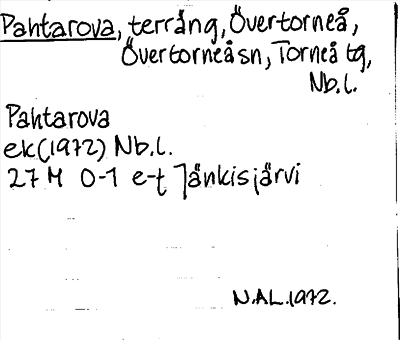 Pahtarova, terräng, Övertorneå,
Övertorneå sn, Torneå tg,
Nb.l.
Pahtarova
ek(1972) Nb.l.
27 M 0-1 e-f Jänkisjärvi
N.AL.1972.